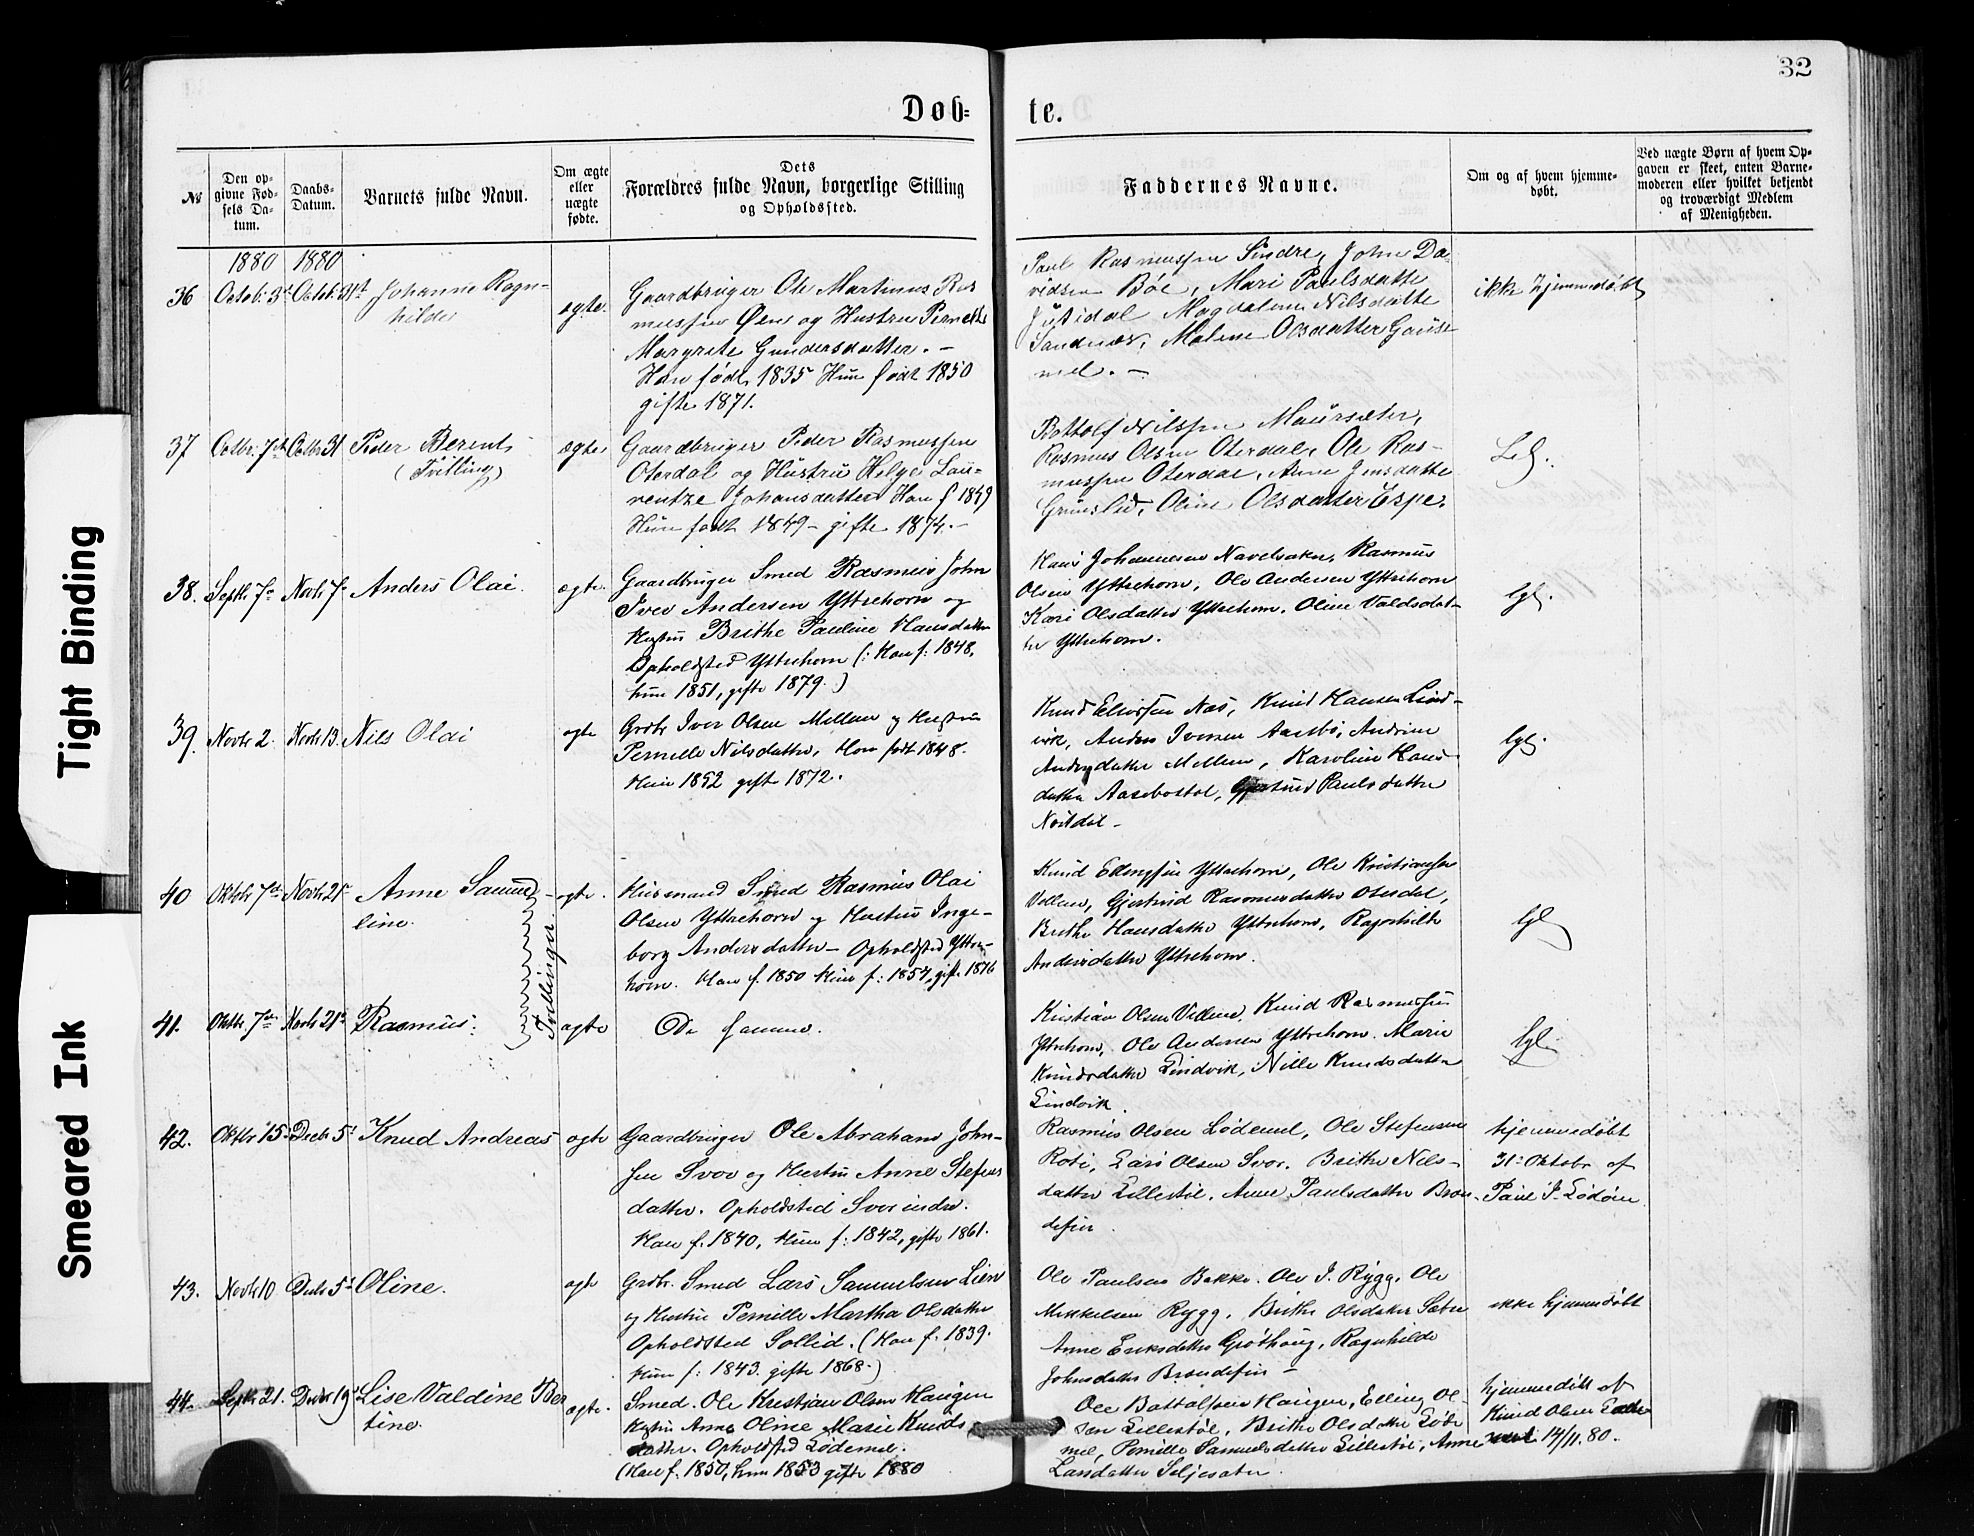 32
Døb=
te.
№
Den op-
givne Fød-
sels Da-
tum.
Daabs-
Datum.
Barnets fulde Navn.
Om ægte
eller
uægte
fødte.
Dets
Forældres fulde Navn, borgerlige Stilling
og Opholdssted.
Faddernes Navne.
Om og af hvem hjemme-
døbt.
Ved uægte Børn af hvem Op-
gaven er skeet, enten Barne-
moderen eller hvilket bekjendt
og troværdigt Medlem
af Menigheden.
1880 1880
36 Octob: 3d Octob: 31st Johanne Ragn-
hilde
ægte.
Gaardbruger Ole Martinus Ras
mussen Øen og Hustru Pernelle
Margrete Gundersdatter. –
Han født 1835 Hun født 1850
gifte 1871.
Paul Rasmussen Sindre, John Da-
vidsen Böe, Mari Paulsdatte
Magdalene Nilsdatte
Sandnæs, Malene Olsdatter Gause
mel. –
ikke hjemmedøbt
37 Octbr. 7de Octbr 31 Peder Berent
(Tvilling)
ægte
Gaardbruger Peder Rasmussen
Oterdal og Hustru Helge Lau-
rentze Johansdatter Han f 1849
Hun født 1849 – gifte 1874. –
Bottolf Nilssen Maursæter,
Rasmus Olsen Oterdal, Ole Ras-
mussen Oterdal, Anne Jensdatte
Grimslid, Oline Olsdatter Espe.
38. Septb. 7de Novb 7de Anders Olai.
ægte.
Gaardbruger Smed Rasmus John
Iver Andersen Yttrehorn og
Hustru Brithe Pauline Hansdatter
Opholdsted Yttrehorn (: Han f: 1848,
hun 1851, gifte 1879.)
Hans Johannesen Navelsaker, Rasmus
Olsen Yttrehorn, Ole Andersen Yttrehorn
Kari Olsdatter Yttrehorn. Oline Valdsdat-
ter Yttrehorn.
lgl.
39. Novbr 2. Novbr 13. Nils Olai
ægte
Grdbr Iver Olsen Mellem og Hustru
Pernelle Nilsdatter, Han født 1848.
Hun 1852 gifte 1872.
Knud Ellevsen Næs, Knud Hansen Lind-
vik, Anders Iversen Aasebø, Andrine
Andersdatter Mellem, Karoline Hans
datter Aasebøstøl, Gjertrud Paulsdatter
Nöitdal –
lgl.
40 Oktbr 7de Novbr 21de Anne Samue
line.
Tvillinger
ægte.
Husmand Smed Rasmus Olai
Olsen Yttrehorn og Hustru Inge-
borg Andersdatter – Opholdsted Yttre-
horn. Han f. 1850 Hun f: 1854, gifte 1876
Knud Ellingsen Yttrehorn, Ole Kristiansen
Vollen, Gjertrud Rasmusdatter Oterdal,
Brithe Hansdatter Yttrehorn, Ragnhilde
Andersdatter Yttrehorn.
lgl
41. Oktbr. 7de Novbr 21de Rasmus.
ægte
De samme.
Kristian Olsen Vedene, Knud Rasmussen
Yttrehorn, Ole Andersen Yttrehorn. Marie
Knudsdatter Lindvik, Nille Knudsdatter
Lindvik.
lgl
42. Oktbr 15. Decbr 5te Knud Andreas
ægte
Gaardbruger Ole Abraham John-
sen Svor og Hustru Anne Stefens
datter. Opholdsted Svor indre.
Han f. 1840, Hun f: 1842, gifte 1861.
Rasmus Olsen Lødemel, Ole Stefensen
Roti, Lars Olsen Svor. Brithe Nils-
datter Lillestøl, Anne Paulsdatter Bran-
defien.
hjemmedøbt
31te Oktobr af
Paul J. Lødøen
43. Novbr 10 Decbr 5te Oline.
ægte
Grdbr. Smed Lars Samuelsen Lien
og Hustru Pernille Martha Olsdatter
Opholdsted Sollid. (Han f: 1839.
Hun f: 1843. gifte 1868.)
Ole Paulsen Bakke. Ole J. Rygg, Ole
Mikkelsen Rygg, Brithe Olsdatter Sætre
Anne Eriksdatter Grøthaug, Ragnhilde
Johnsdatter Brandefien –
ikke hjemmedøbt
44. Septb 21. Decbr 19de Lise Valdine Ber
tine.
ægte.
Smed. Ole Kristian Olsen Haugen
Hustru Anne Oline Marie Knuds
datter. Opholdsted Lødemel.
(Han f. 1850, hun 1853 gifte 1880
Ole Bottolfsen Haugen, Elling Ol-
sen Lillestøl, Brithe Olsdatter Løde
mel, Pernille Samuelsdatter Lillestøl, Anne
Larsdatter Seljesæter.
hjemmedøbt af
Knud Olsen Løde
mel 14/11. 80.
Tight Binding
Smeared Ink